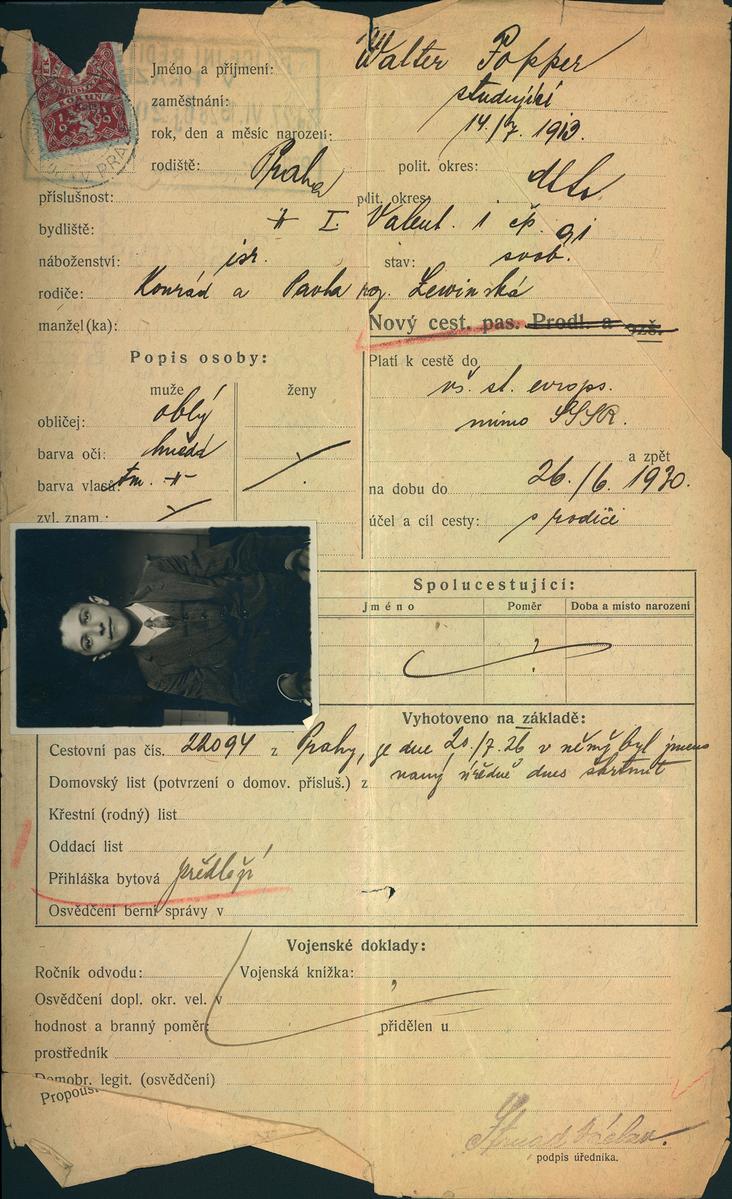 Jméno a příjmení: Walter Popper
zaměstnání: studující
rok, den a měsíc narození: 14./7. 1913.
rodiště: Praha polit. okres: dtto
příslušnost: polit. okres:
bydliště: I. Valent. čp. 91
náboženství: isr. stav: svob.
rodiče: Konrád a Pavla roz. Lewinská
manžel(ka): Nový cest. pas. Prodl. a
Popis osoby:
Platí k cestě do
muže ženy
vš. st. evrops.
obličej: oblý
mimo SSSR.
barva očí: hnědá
a zpět
barva vlasů: tm.
na dobu do 26./6. 1930.
zvl. znam.:
účel a cíl cesty: s rodiči
Spolucestující:
Jméno Poměr Doba a místo narození
Vyhotoveno na základě:
Cestovní pas čís. 22094 z Prahy, ze dne 20./7. 26 v němž byl jmeno
Domovský list (potvrzení o domov. přísluš.) z vaný úředně dnes škrtnut
Křestní (rodný) list
Oddací list
Přihláška bytová předloží
Osvědčení berní správy v
Vojenské doklady:
Ročník odvodu: Vojenská knížka:
Osvědčení dopl. okr. vel. v
hodnost a branný poměr: přidělen u
prostředník
Domobr. legit. (osvědčení)
Propoušt
Václav.
podpis úředníka.